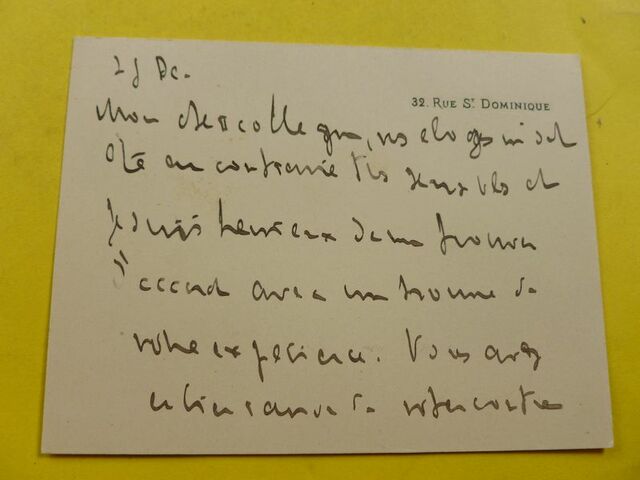 Déc.
32. RUE St DOMINIQUE
Mon cher collègue, vos éloges m'ont
été au contraire très sensibles et
je suis heureux de me trouver
d'accord avec un homme de
votre expérience. Vous avez
bien de